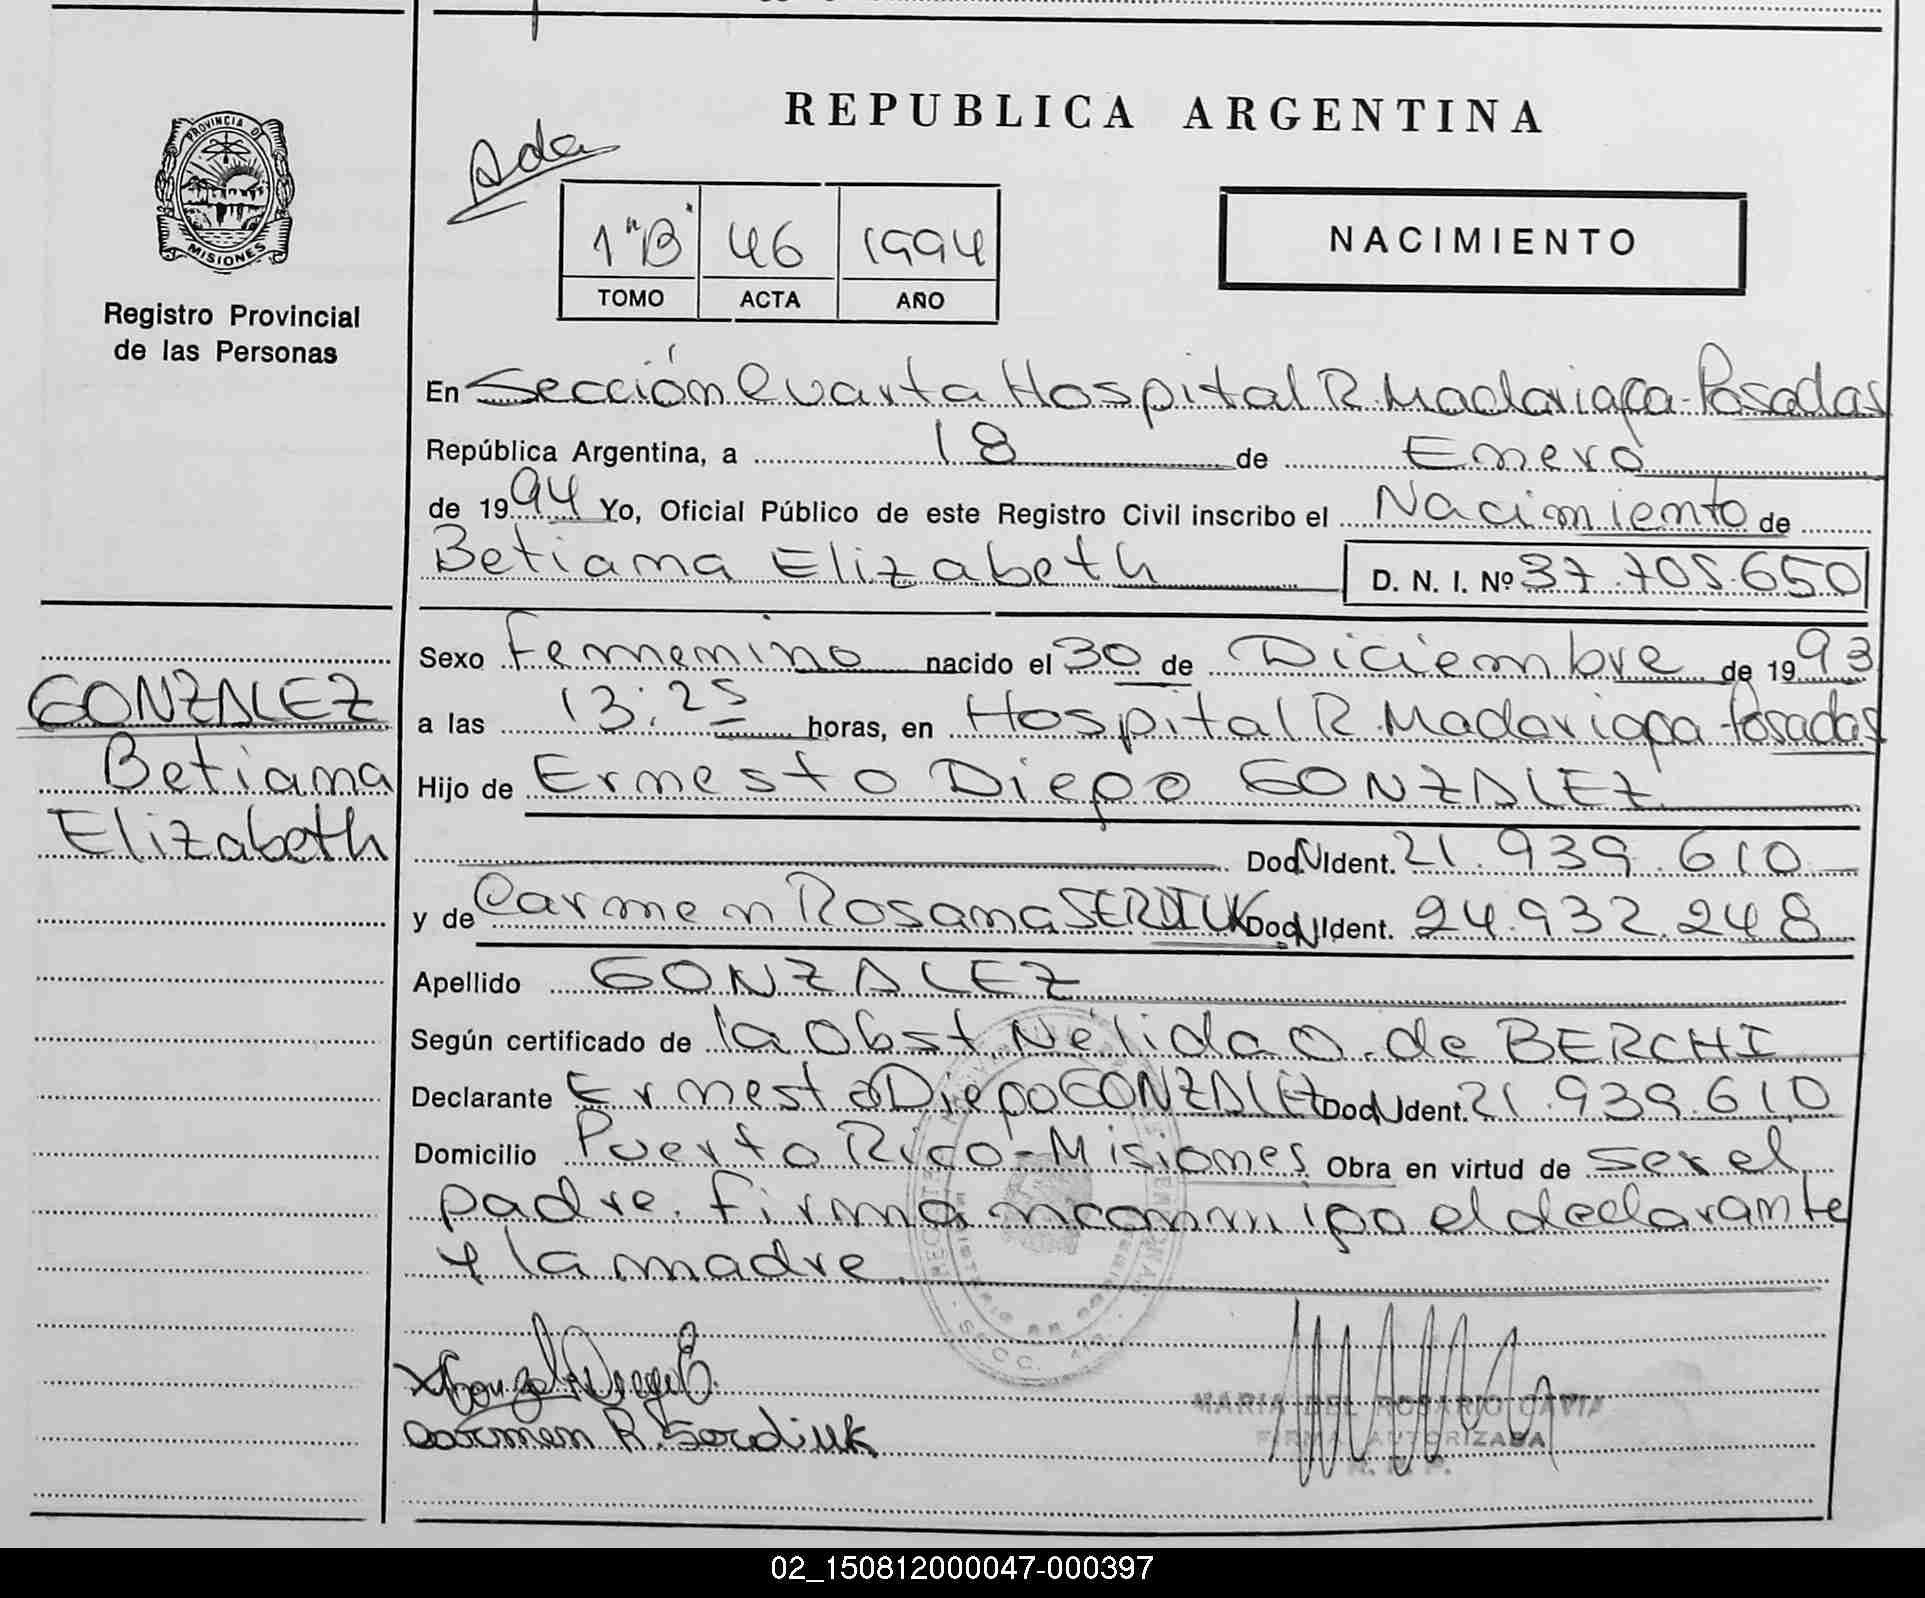 REPUBLICA ARGENTINA
PROVINCIA DE
MISIONES
Registro Provincial
de las Personas
1 "B" 46 1994
TOMO ACTA AÑO
NACIMIENTO
En Sección Cuarta Hospital R. Madariaga - Posadas
República Argentina, a 18 de Enero
de 1994 Yo, Oficial Público de este Registro Civil inscribo el Nacimiento de
Betiana Elizabeth D. N. I. Nº 37.705.650
Sexo Femenino nacido el 30 de Diciembre de 1993
GONZALEZ
Betiana
Elizabeth
a las 13:25 horas, en Hospital R. Madariaga - Posadas
Hijo de Ernesto Diego GONZALEZ
Doc. N. Ident. 21.939.610
y de Carmen Rosana SERDIUK Doc. N. Ident. 24.932.248
Apellido GONZALEZ
Según certificado de la Obst. Nélida O. de BERCHI
Declarante Ernesto Diego GONZALEZ Doc. N. Ident. 21.939.610
Domicilio Puerto Rico - Misiones Obra en virtud de ser el
padre. Firman conmigo el declarante
y la madre.
Carmen R. Serdiuk
MARIA DEL ROSARIO
FIRMA AUTORIZADA
02_150812000047-000397